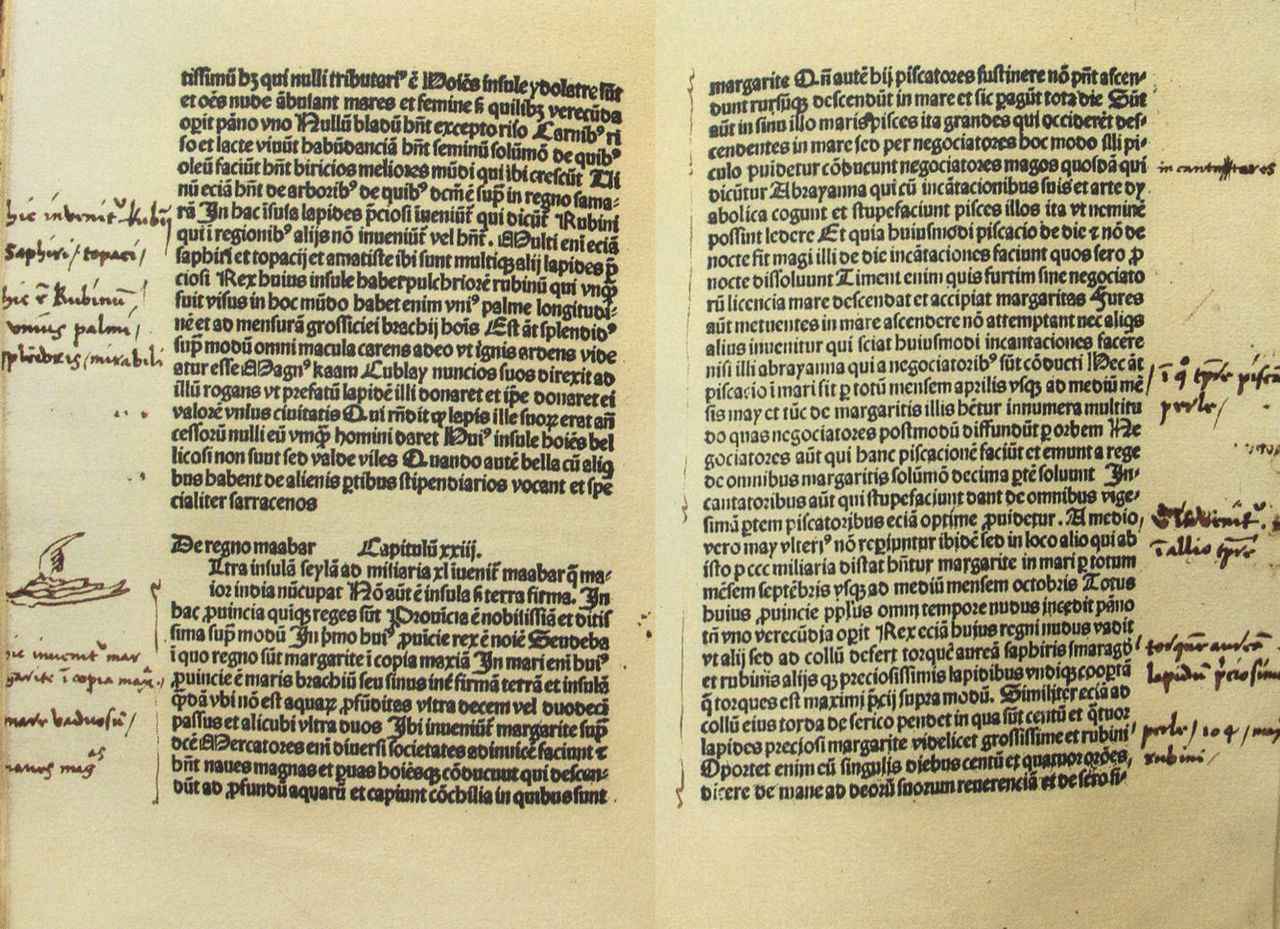 tissimū bꝫ qui nulli tributariꝰ ē Hoiēs insule ydolatre sūt
et oēs nude ābulant mares et femine s̄ quilibꝫ verecūda
oꝑit pāno vno Nullū bladū hn̄t excepto riso Carnibꝰ ri
so et lacte viuūt habūdanciā hn̄t seminū solūmō de quibꝰ
oleū faciūt hn̄t biricios meliores mūdi qui ibi crescūt Ui
nū eciā hn̄t de arboribꝰ de quibꝰ dcm̄ ē sup̄ in regno sama-
rā In hac īsula lapides p̄ciosi īueniūt̄ qui dicūt̄ Rubini
qui ī regionibꝰ alijs nō inueniūt̄ vel hn̄t. Multi eni eciā
saphiri et topacij et amatiste ibi sunt multiqꝫ alij lapides p̄
ciosi Rex huius insule habet pulchriorē rubinū qui vnq̄ꝫ
fuit visus in hoc mūdo habet enim vniꝰ palme longitudi-
nē et ad mensurā grossiciei brachij hoīs Est āt splendidꝰ
sup̄ modū omni macula carens adeo vt ignis ardens vide
atur esse Magnꝰ kaam Cublay nuncios suos direxit ad
illū rogans vt prefatū lapidē illi donaret et ip̄e donaret ei
valorē vnius ciuitatis Qui rn̄dit ꝙ lapis ille suoꝝ erat ān
cessorū nulli eū vmq̄ꝫ homini daret Huiꝰ insule hoiēs bel
licosi non sunt sed valde viles Quando autē bella cū aliq
bus habent de alienis ꝑtibus stipendiarios vocant et spe
cialiter sarracenos
De regno maabar Capitulū xxiii.
Ltra insulā seylā ad miliaria xl īuenit̄ maabar q̄ ma-
ior india nūcupat̄ Nō aūt ē insula s̄ terra firma. In
hac ꝓuincia quiqꝫ reges sūt Prouīcia ē nobilissiā et ditis
sima sup̄ modū In p̄mo huiꝰ ꝓuīcie rex ē noīe Sendeba
ī quo regno sūt margarite ī copia maxiā In mari enī huiꝰ
ꝓuincie ē maris brachiū seu sinus inē firmā terrā et insulā
q̄dā vbi nō est aquaꝝ ꝓfūditas vltra decem vel duodecī
passus et alicubi vltra duos Ibi īueniūt̄ margarite sup̄
dcē Mercatores enī diuersi societates adinuicē faciunt ⁊
hn̄t naues magnas et ꝑuas hoiēsqꝫ cōducunt qui descen-
dūt ad ꝓfundū aquarū et capiunt cōchilia in quibus sunt
hic invenitʳ Rubinj
Saphiri / topaci /
hic ē Rubinū
vnius palmi /
splēdoris / mirabili
hic invenitʳ mar
garite ī copia maxᵃ
mare vadosū /
naues magᵃˢ
margarite Qn̄ autē hij piscatores sustinere nō pn̄t ascen-
dunt rursūqꝫ descendūt in mare et sic ꝑagūt tota die Sūt
aūt in sinu illo maris pisces ita grandes qui occiderēt des-
cendentes in mare sed per negociatores hoc modo illi pi-
culo ꝓuidetur cōducunt negociatores magos quosdā qui
dicūtur Abrayanna qui cū incātacionibus suis et arte dy
abolica cogunt et stupefaciunt pisces illos ita vt neminē
possint ledere Et quia huiusmodi piscacio de die ⁊ nō de
nocte fit magi illi de die incātaciones faciunt quos sero ꝓ
nocte dissoluunt Timent enim quis furtim sine negociato
rū licencia mare descendat et accipiat margaritas Fures
aūt metuentes in mare ascendere nō attemptant nec aliqs
alius inuenitur qui sciat huiusmodi incantaciones facere
nisi illi abrayanna qui a negociatoribꝰ sūt cōducti Hec āt
piscacio ī mari fit ꝑ totū mensem aprilis vsqꝫ ad mediū mē
sis may et tūc de margaritis illis hētur innumera multitu
do quas negociatores postmodū diffundūt ꝑ orbem Ne
gociatores aūt qui hanc piscacionē faciūt et emunt a rege
de omnibus margaritis solūmō decima ꝑtē soluunt In-
cantatoribus aūt qui stupefaciunt dant de omnibus vige-
simā ꝑtem piscatoribus eciā optime ꝓuidetur. A medio
vero may vlteriꝰ nō reꝑiuntur ibidē sed in loco alio qui ab
isto ꝑ ccc miliaria distat hn̄tur margarite in mari ꝑ totum
mēsem septēbris vsqꝫ ad mediū mensem octobris Totus
huius ꝓuincie pplus omni tempore nudus incedit pāno
tn̄ vno verecūdia oꝑit Rex eciā huius regni nudus vadit
vt alij sed ad collū defert torquē aureā saphiris smaragdꝭ
et rubinis alijsqꝫ preciosissimis lapidibus vndiqꝫ cooꝑtā
q̄ torques est maximi p̄cij supra modū. Similiter eciā ad
collū eius corda de serico pendet in qua sūt centū et q̄tuor
lapides preciosi margarite videlicet grossissime et rubini
Oportet enim cū singulis diebus centū et quatuor orōes
dicere de mane ad deorū suorum reuerenciā et de sero si-
in cantatores
ī qᵒ tp̄re piscāt
perle /
inuenitʳ
ī alio tp̄re
torquē aureā
lapidū p̄ciosim
perle / 104 / may
rubini /